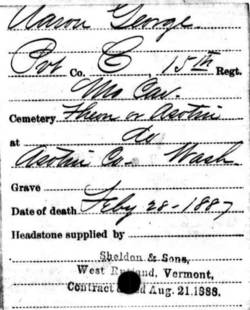 Aaron George
Pvt Co. C, 15th Regt.
Mo Cav.
Cemetery Theon or Asotin
at do
Asotin Co. Wash.
Grave
Date of death Feby 28-1887
Headstone supplied by
Sheldon & Sons,
West Rutland, Vermont,
Contract Aug. 21, 1888.